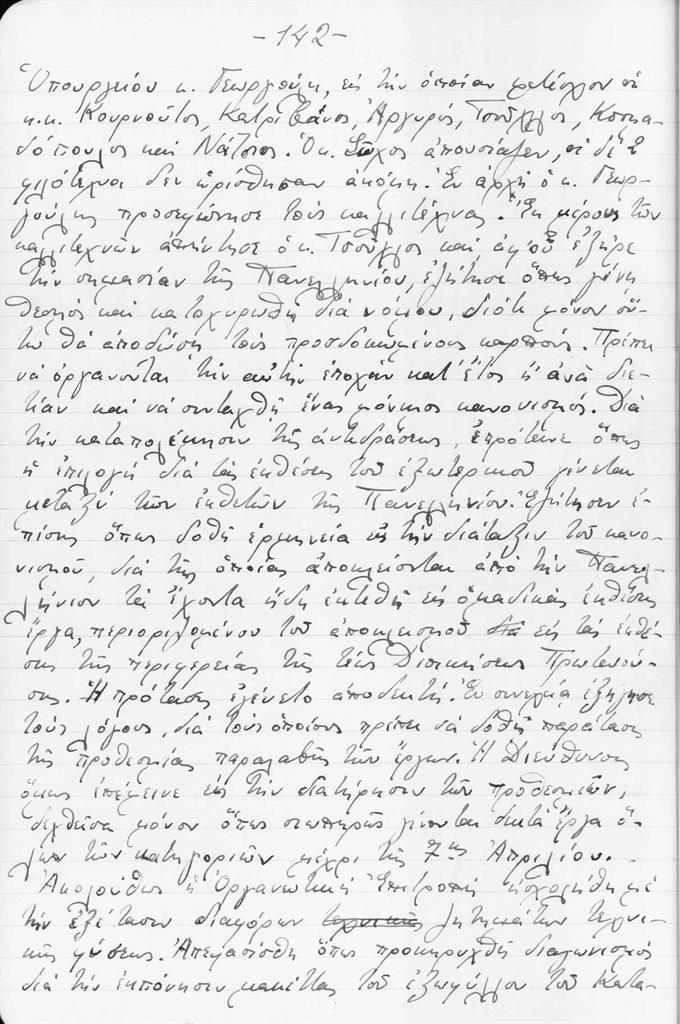 -142-
Ὑπουργείου κ. Γεωργούλη, εἰς τὴν ὁποίαν μετέσχον οἱ
κ.κ. Κουρνοῦτος, Κατριβάνος, Ἀργυρός, Τσοῦχλος, Κοσμα-
δόπουλος καὶ Νάτσιος. Ὁ κ. Σῶχος ἀπουσίαζεν, οἱ δὲ 2
φιλότεχνοι δεν ὡρίσθησαν ἀκόμη. Ἐν ἀρχῇ ὁ κ. Γεωρ-
γούλης προσεφώνησε τοὺς καλλιτέχνας. Ἐκ μέρους τῶν
καλλιτεχνῶν ἀπήντησε ὁ κ. Τσοῦχλος καὶ ἀφ' οὗ ἐξῇρε
τὴν σημασίαν τῆς Πανελληνίου, ἐζήτησε ὅπως γίνῃ
θεσμός καὶ κατοχυρωθῇ διὰ νόμου, διότι μόνον οὕ-
τω θὰ ἀποδώσῃ τοὺς προσδοκωμένους καρπούς. Πρέπει
νὰ ὀργανοῦται τὴν αὐτὴν ἐποχὴν κατ' ἔτος ἢ ἀνὰ διε-
τίαν καὶ νὰ συνταχθῇ ἕνας μόνιμος κανονισμός. Διὰ
τὴν καταπολέμησιν τῆς ἀντιδράσεως, ἐπρότεινε ὅπως
ἡ ἐπιλογὴ διὰ τὰς ἐκθέσεις τοῦ ἐξωτερικοῦ γίνεται
μεταξὺ τῶν ἐκθετῶν τῆς Πανελληνίου. Ἐζήτησεν ἐ-
πίσης ὅπως δοθῇ ἑρμηνεία εἰς τὴν διάταξιν τοῦ κανο-
νισμοῦ, διὰ τῆς ὁποίας ἀποκλείονται ἀπὸ τὴν Πανελ-
λήνιον τὰ ἔχοντα ἤδη ἐκτεθῇ εἰς ὁμαδικὰς ἐκθέσεις
ἔργα, περιοριζομένου τοῦ ἀποκλεισμοῦ εἰς τὰς ἐκθέ-
σεις τῆς περιφερείας τῆς τέως Διοικήσεως Πρωτευού-
σης. Ἡ πρότασις ἐγένετο ἀποδεκτή. Ἐν συνεχείᾳ ἐξήγησε
τοὺς λόγους, διὰ τοὺς ὁποίους πρέπει νὰ δοθῇ παράτασις
τῆς προθεσμίας παραλαβῆς τῶν ἔργων. Ἡ Διεύθυνσις
ὅμως ἐπέμεινε εἰς τὴν διατήρησιν τῶν προθεσμιῶν,
δεχθεῖσα μόνον ὅπως σιωπηρῶς γίνονται δεκτὰ ἔργα ὅ-
λων τῶν κατηγοριῶν μέχρι τῆς 7ης Ἀπριλίου.
Ἀκολούθως ἡ Ὀργανωτικὴ Ἐπιτροπὴ ἠσχολήθη μὲ
τὴν ἐξέτασιν διαφόρων ζητημάτων τεχνι-
κῆς φύσεως. Ἀπεφασίσθη ὅπως προκηρυχθῇ διαγωνισμὸς
διὰ τὴν ἐκπόνησιν μακέττας τοῦ ἐξωφύλλου τοῦ Κατα-